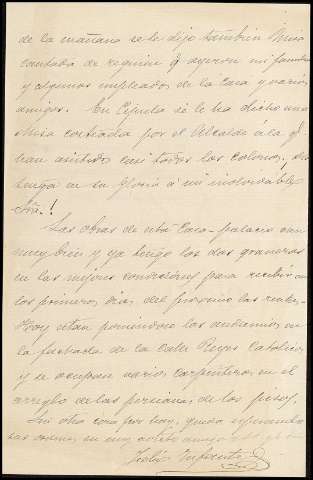 de la mañana se le dijo también Misa
cantada de requiem q. oyeron mi familia
y algunos empleados de la Casa y varios
amigos. En Espeluy se le ha dicho una
Misa costeada por el Alcalde á la q.
han asistido casi todos los colonos,
tenga en su Gloria á mi inolvidable
Sra.!
Las obras de esta Casa-palacio van
muy bien y ya tengo los dos graneros
en las mejores condiciones para recibir en
los primeros días del próximo las rentas.
Hoy están poniendo los andamios en
la fachada de la Calle Reyes Católicos
y se ocupan varios Carpinteros en el
arreglo de las persianas de los pisos.
Sin otra cosa por hoy, queda esperando
sus órdenes su muy adicto amigo
Julio